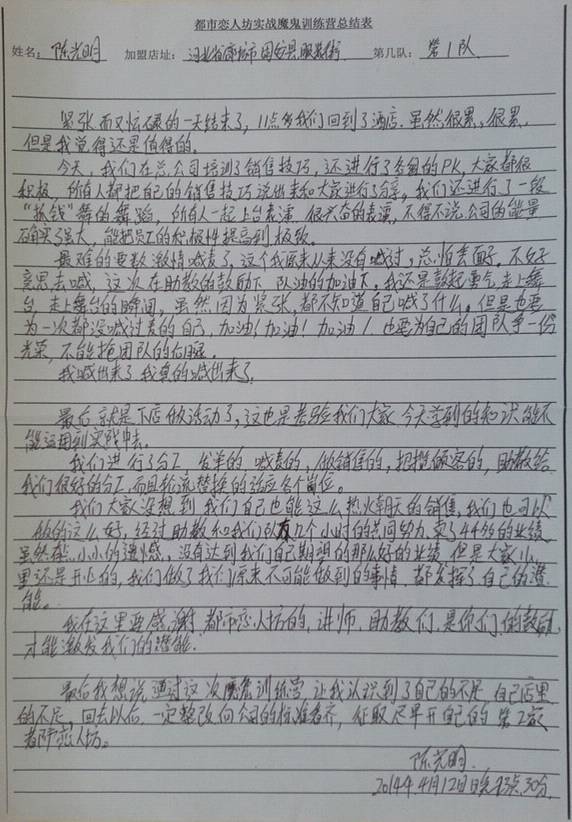 都市恋人坊实战魔鬼训练营总结表
姓名：陈光明 加盟店址：河北省廊坊市固安县服装街 第几队：第1队
紧张而又炫碌的一天结束了，11点多我们回到了酒店.虽然很累，很累，
但是我觉得还是值得的。
今天，我们在总公司培训了销售技巧，还进行了各组的PK，大家都很
积极，所有人都把自己的销售技巧说出来和大家进行了分享，我们还进行了一段
“抓钱”舞的舞蹈，所有人一起上台表演，很兴奋的表演，不得不说公司的能量
确实强大，能把员工的积极性提高到极致。
最难的要数激情喊麦了，这个我原来从来没有喊过，总怕丢面子，不好
意思去喊，这次在助教的鼓励下，队油的加油下，我还是鼓起勇气走上舞
台，走上舞台的瞬间，虽然因为紧张，都不知道自己喊了什么。但是也要
为一次都没喊过麦的自己，加油！加油！加油！也要为自己的团队争一份
光荣，不能拖团队的后腿。
我喊出来了，我真的喊出来了，
最后就是下店做活动了，这也是考验我们大家今天学到的知识能不
能运用到实践中去。
我们进行了分工，发单的，喊麦的，做销售的，把揽顾客的，助教给
我们很好的分工，而且轮流替换的适应各个岗位。
我们大家没想到我们自己也能这么热火朝天的销售，我们也可以
做的这么好，经过助教和我们队几个小时的共同努力，卖了44的业绩
虽然有小小的遗憾，没有达到我们自己期望的那么好的业绩，但是大家心
里还是开心的，我们做了我们原来不可能做到的事情，都发挥了自己的潜
能。
我在这里要感谢都市恋人坊的讲师，助教们，是你们的鼓励
才能激发我们的潜能.
最后我想说通过这次魔鬼训练营让我认识到了自己的不足，自己店里
的不足，回去以后，一定整改向公司的标准看齐，征取尽早开自己的第2家
都市恋人坊。
陈光明.
2014年4月12日点30分